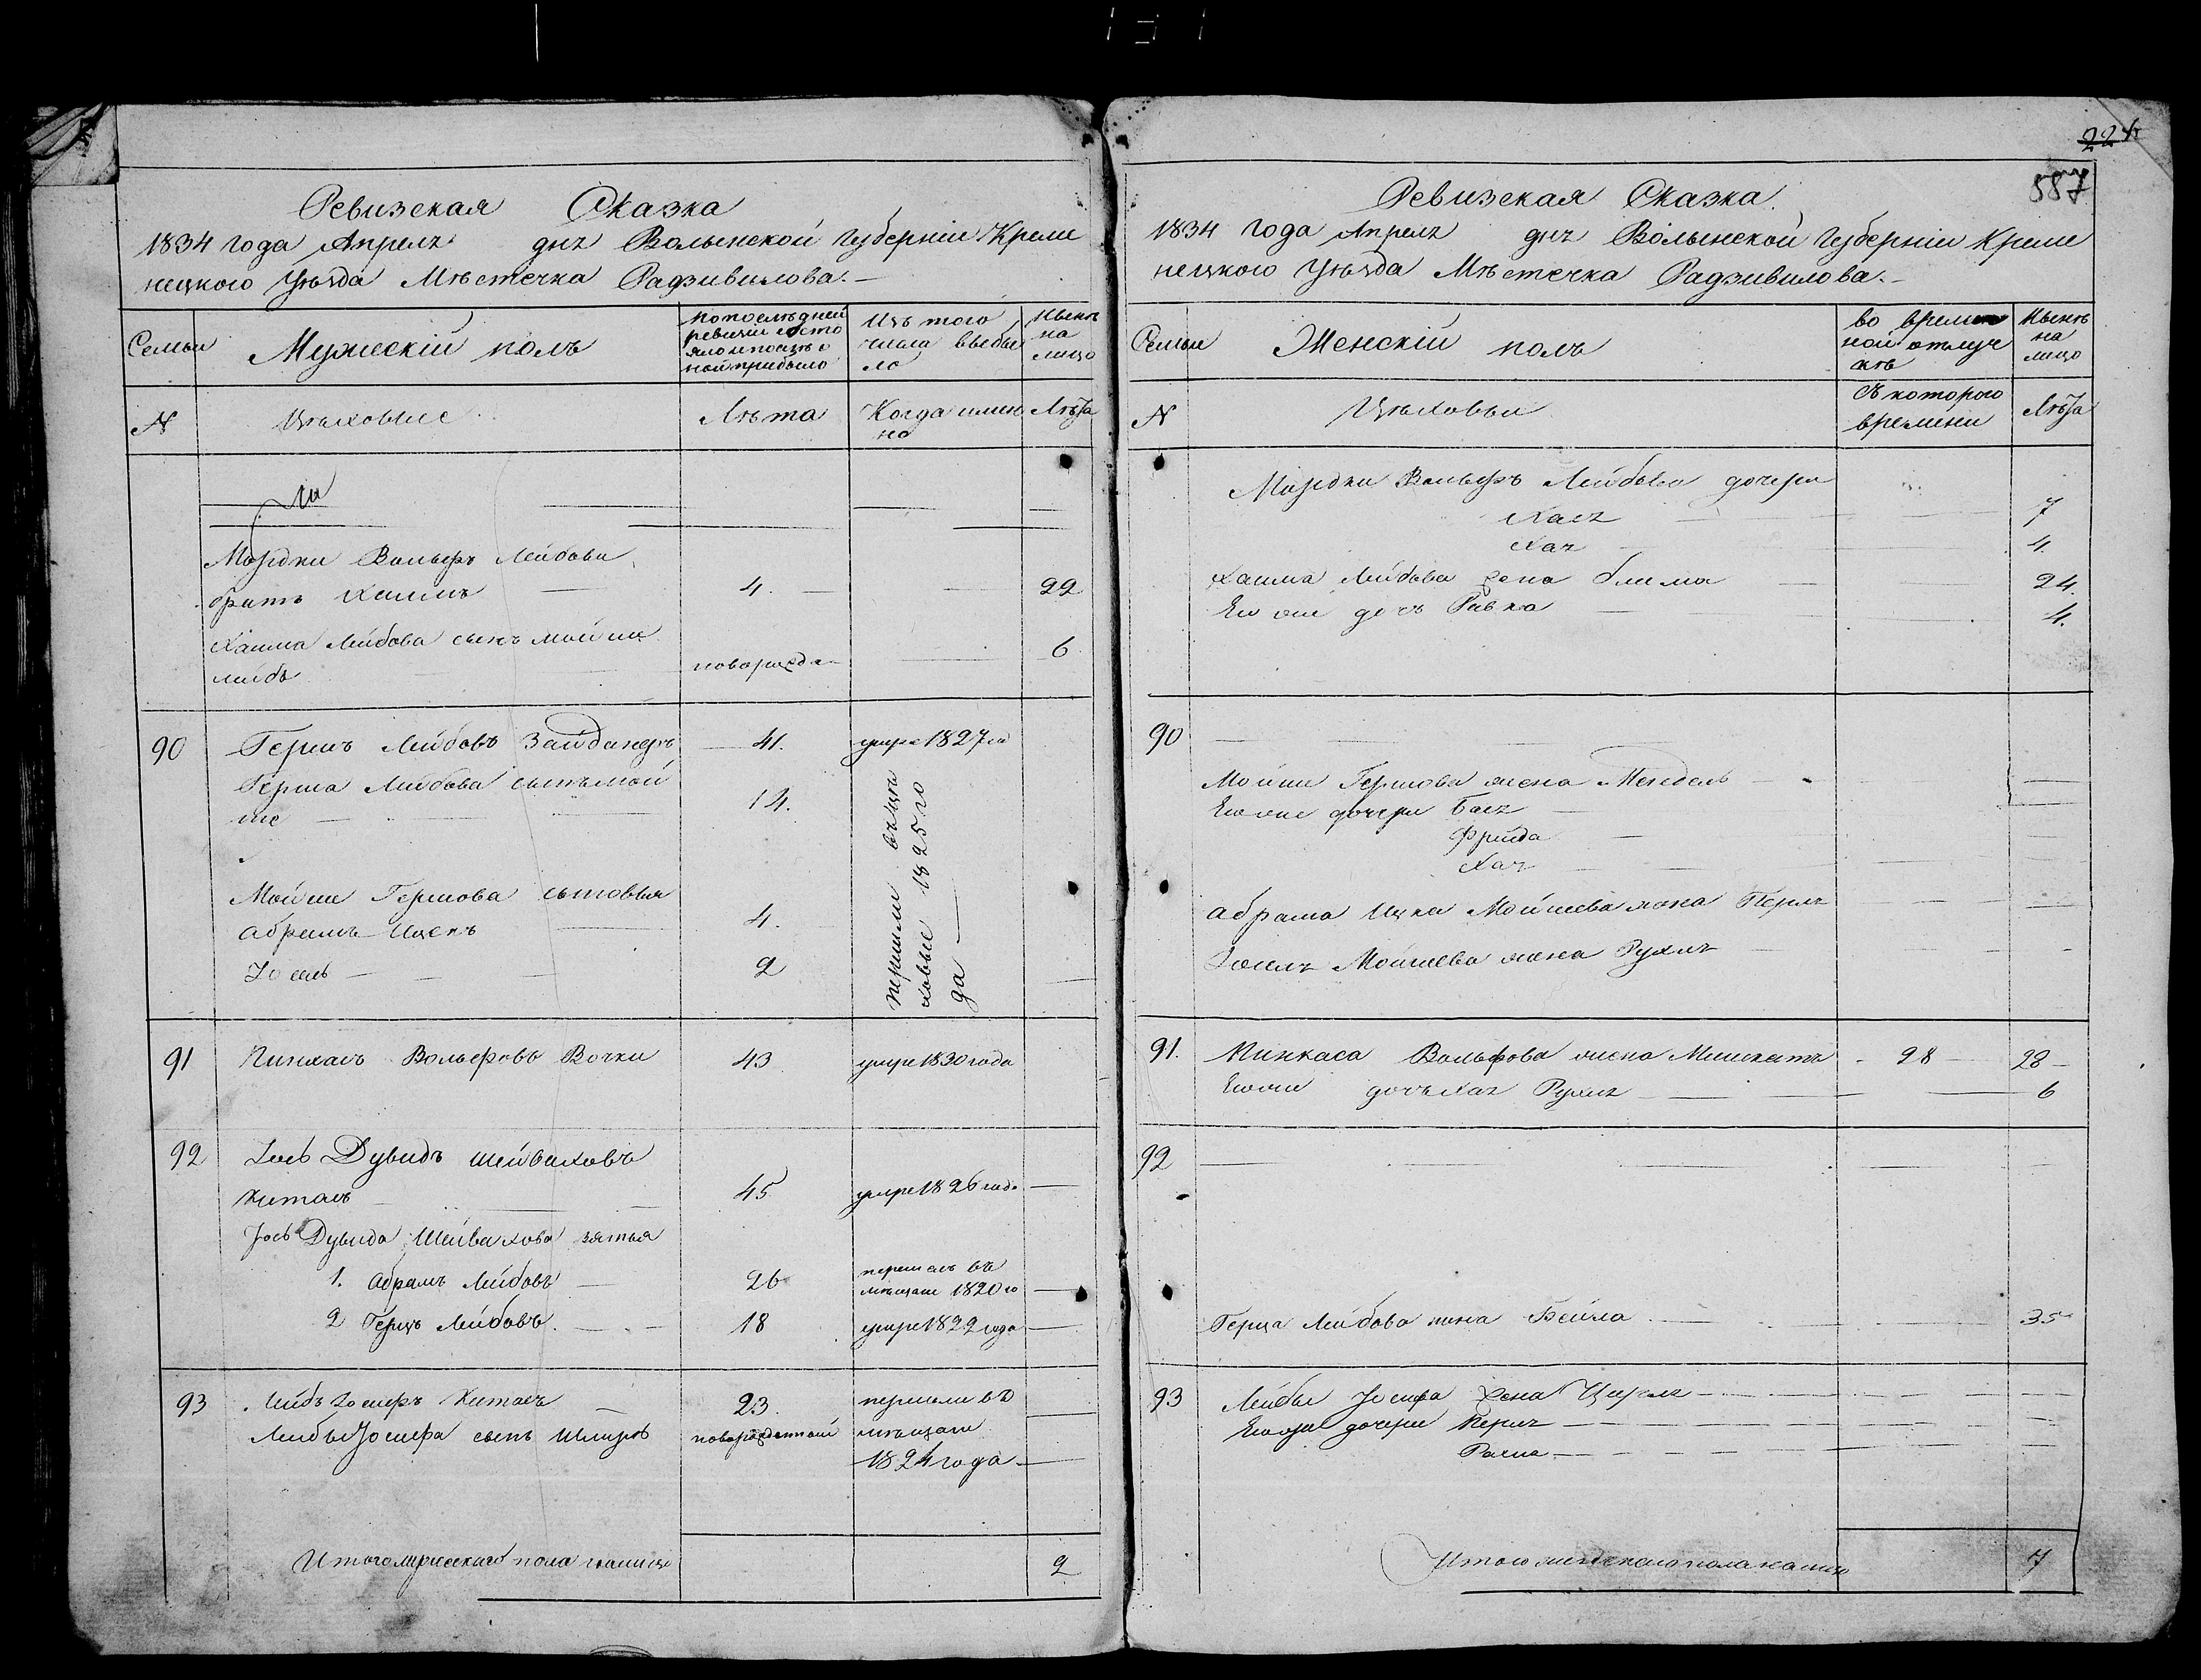 Ревизская Сказка
1834 года Апреля дня Волынской Губерніи Креме
нецкого Уѣзда Мѣстечка Радзивилова.
Семьи
Мужескій полъ
По послѣдней
ревизіи состо
яло и послѣ о
ной прибыло
Изъ того
числа выбы
ло
Нынѣ
на
лицо
N
Цѣховые
Лѣта
Когда имен
но
Лѣта
Мордки Вольфъ Лейбова
братъ Хаимъ 4. 22
Хаима Лейбова сынъ Мойше
Лейбъ новорожда 6
90 Гершъ Лейбовъ Зайдингеръ 41. умре 1827 го
Герша Лейбова сынъ Мой
ше 14.
Мойше Гершова сыновья
Абрамъ Ицекъ 4.
Іосель 2
перешли въ цѣ
ховые 1825 го
да
91 Пинхасъ Вольфовъ Вочки 43 умре 1830 года
92 Іось Дувидъ Шейваховъ
Китаъ 45 умре 1826 года
Іось Дувида Шейвахова зятья
1. Абрамъ Лейбовъ 26 перешелъ въ
мѣщане 1820 го
2 Герцъ Лейбовъ 18 умре 1822 года
93 Лейбъ Іосифъ Китаъ 23 перешли въ
Лейбы Іосифа сынъ новорожденной мѣщане
1824 года
Итого мужескаго пола на лицо 2
224
587
Ревизская Сказка
1834 года Апреля дня Волынской Губерніи Креме
нецкого Уѣзда Мѣстечка Радзивилова.
Семьи
Женскій полъ
во времен
ной отлуч
кѣ
Нынѣ
на
лицо
N
Цѣховыи
Съ которого
времени
Лѣта
Мордки Вольфъ Лейбова дочери
Хася 7
Хая 4.
Хаима Лейбова жена Блима 24.
Его же дочь Ривка 4.
90
Мойши Гершова жена Мендель
Его же дочери Бася
Фрейда
Хая
Абрама Ицка Мойшева жена Перля
Іоселя Мойшева жена Рухля
91. Пинкаса Вольфова жена 28 28
Его же дочь Хая Рухля 6
92
Герца Лейбова жена Бейла 35
93 Лейбы Іосифа жена Цирля
Его же дочери Перля
Рахля
Итого женскаго пола на лицо 7